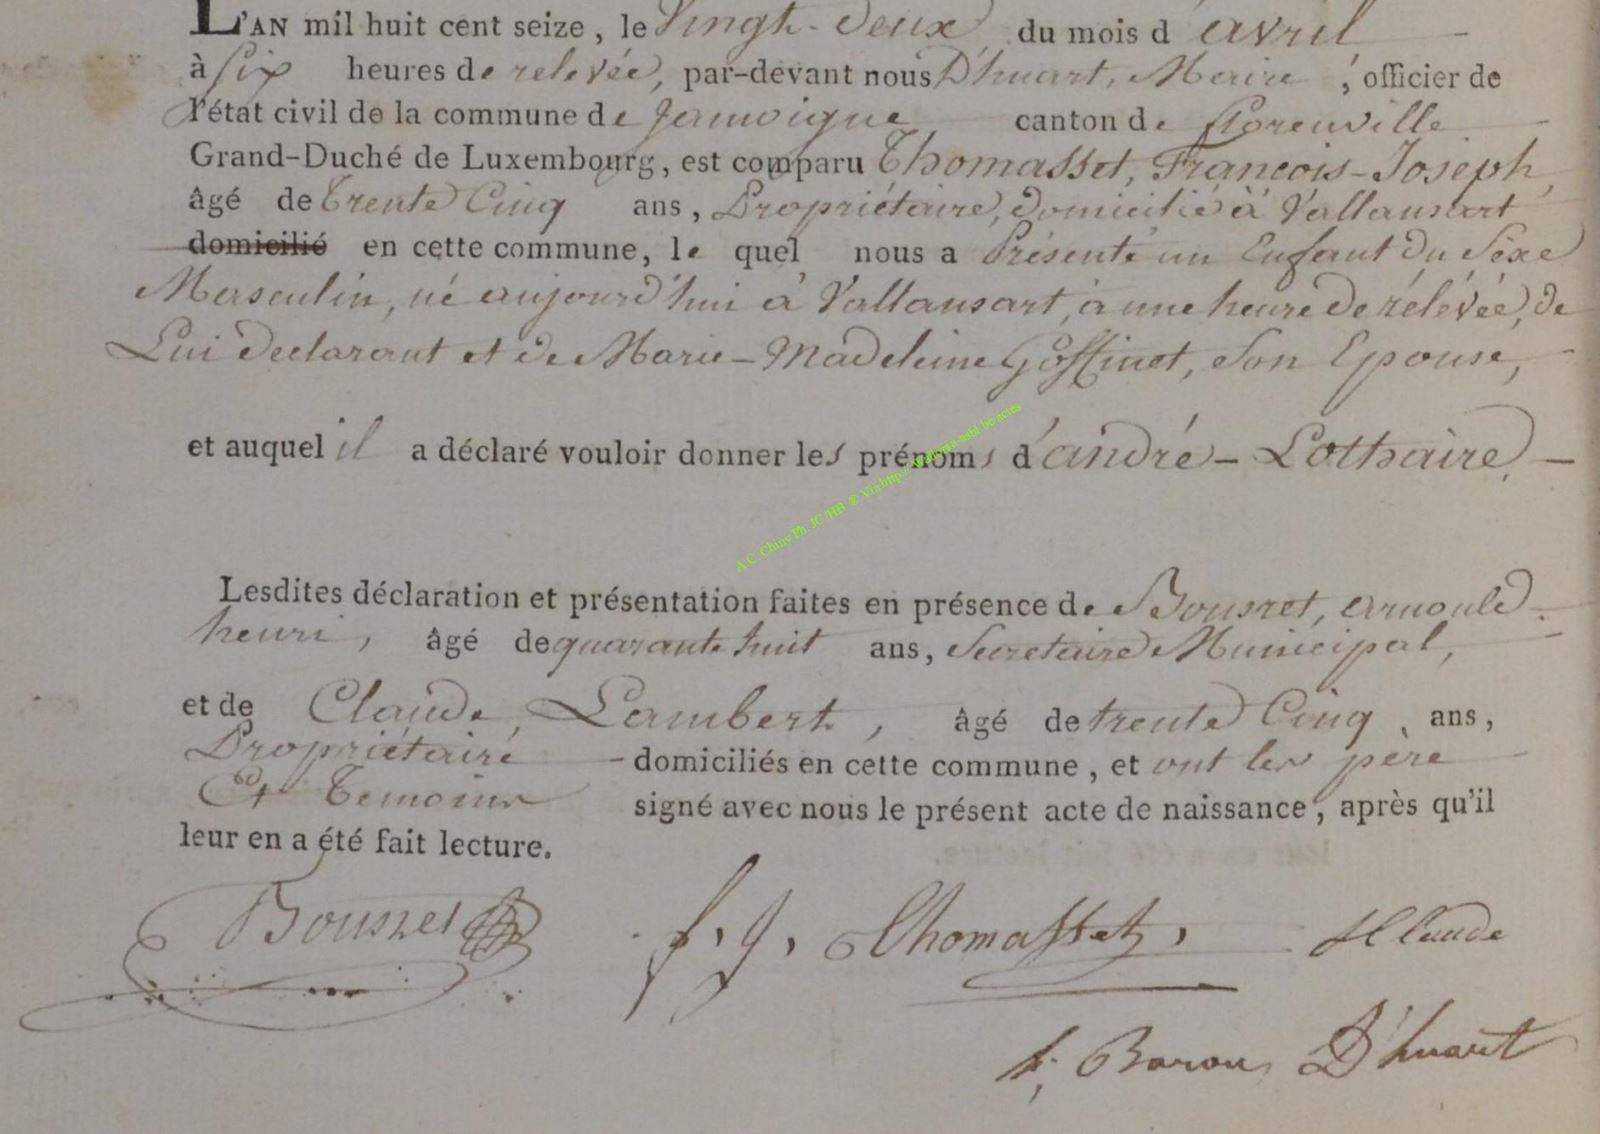 L'AN mil huit cent seize, le Vingt-Deux du mois d'avril
à Six heures de relevée, par-devant nous D'huart, Maire, officier de
l'état civil de la commune de Jamoigne canton de Florenville
Grand-Duché de Luxembourg, est comparu Thomasset, François-Joseph,
âgé de Trente Cinq ans, Propriétaire, domicilié à Vallansart
domicilié en cette commune, le quel nous a Présenté un Enfant du Sèxe
Masculin, né aujourd'hui à Vallansart, à une heure de rélévée, de
Lui declarant et de Marie-Madeleine Goffinet, Son Epouse,
et auquel il a déclaré vouloir donner les prénoms d'andré-Lothaire,
A.C. Chiny Ph. JC-HB
Lesdites déclaration et présentation faites en présence de Bousret, arnould
henri, âgé de quarante huit ans, Secretaire Municipal,
et de Claude, Lambert, âgé de trente Cinq ans,
Propriétaire domiciliés en cette commune, et ont les père
Et Temoins signé avec nous le présent acte de naissance, après qu'il
leur en a été fait lecture.
Bousret f. J. Thomasset, Claude
Baron D'huart